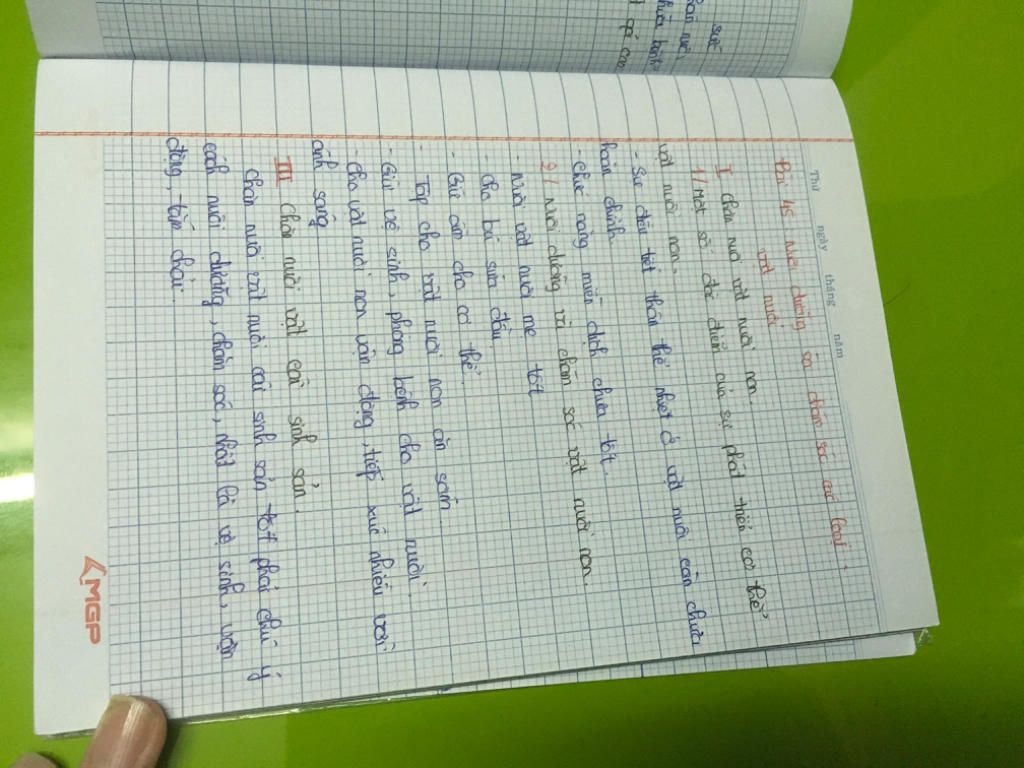 suất
quá cao
Thứ ngày tháng năm
Bài 45 Nuôi dưỡng và chăm sóc các loại
vật nuôi
I Chăn nuôi vật nuôi non.
1/ Một số đặc điểm của sự phát triển cơ thể
vật nuôi non.
- Sự điều tiết thân thể nhiệt ở vật nuôi còn chưa
hoàn chỉnh
- Chức năng miễn dịch chưa tốt.
2/ Nuôi dưỡng và chăm sóc vật nuôi non.
- Nuôi vật nuôi mẹ tốt
- Cho bú sữa đầu
- Giữ ấm cho cơ thể.
- Tập cho vật nuôi non ăn sớm.
- Giữ vệ sinh, phòng bệnh cho vật nuôi.
- Cho vật nuôi non vận động, tiếp xúc nhiều với
ánh sáng
III Chăn nuôi vật cái sinh sản.
Chăn nuôi vật nuôi cái sinh sản tốt phải chú ý
cách nuôi dưỡng, chăm sóc, nhất là vệ sinh, vận
động, tắm chải.
MGP